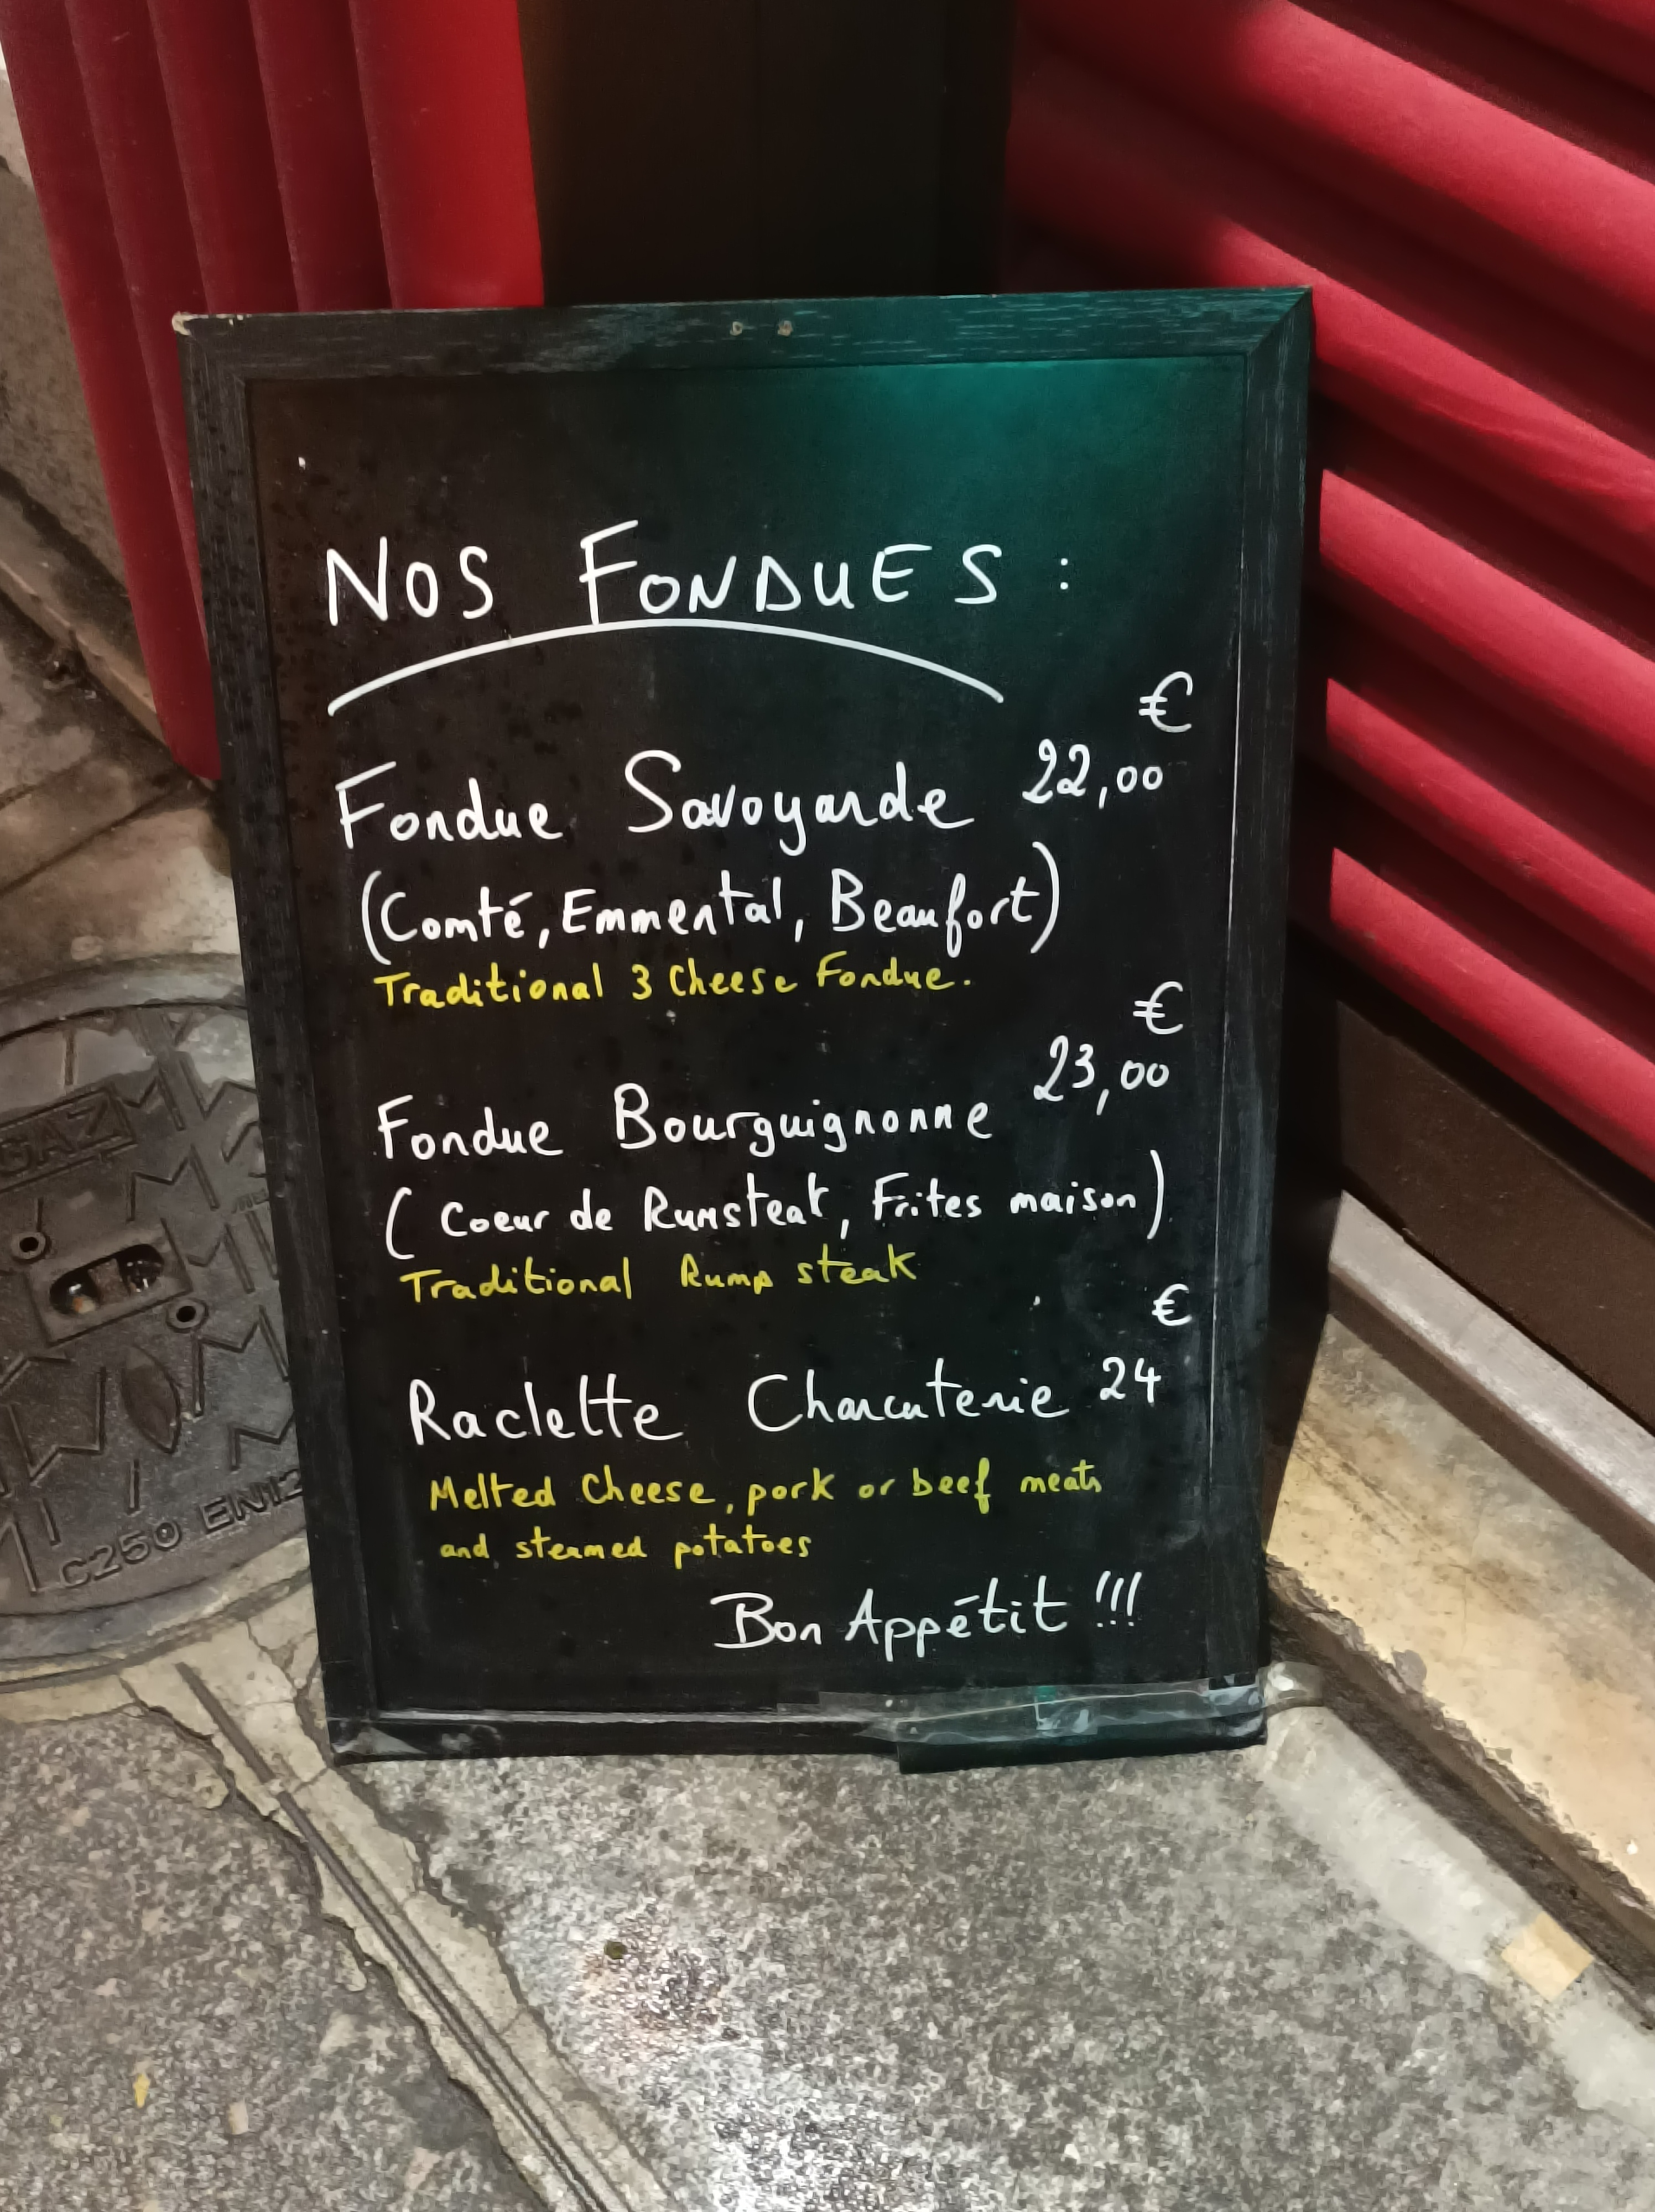 NOS FONDUES :
€
Fondue Savoyarde 22,00
(Comté, Emmental, Beaufort)
Traditional 3 Cheese Fondue.
€
23,00
Fondue Bourguignonne
( Coeur de Rumsteak, Frites maison)
Traditional Rump steak
€
Raclette Charcuterie 24
Melted Cheese, pork or beef meats
and steamed potatoes
Bon Appétit !!!
GAZ
C250 EN12